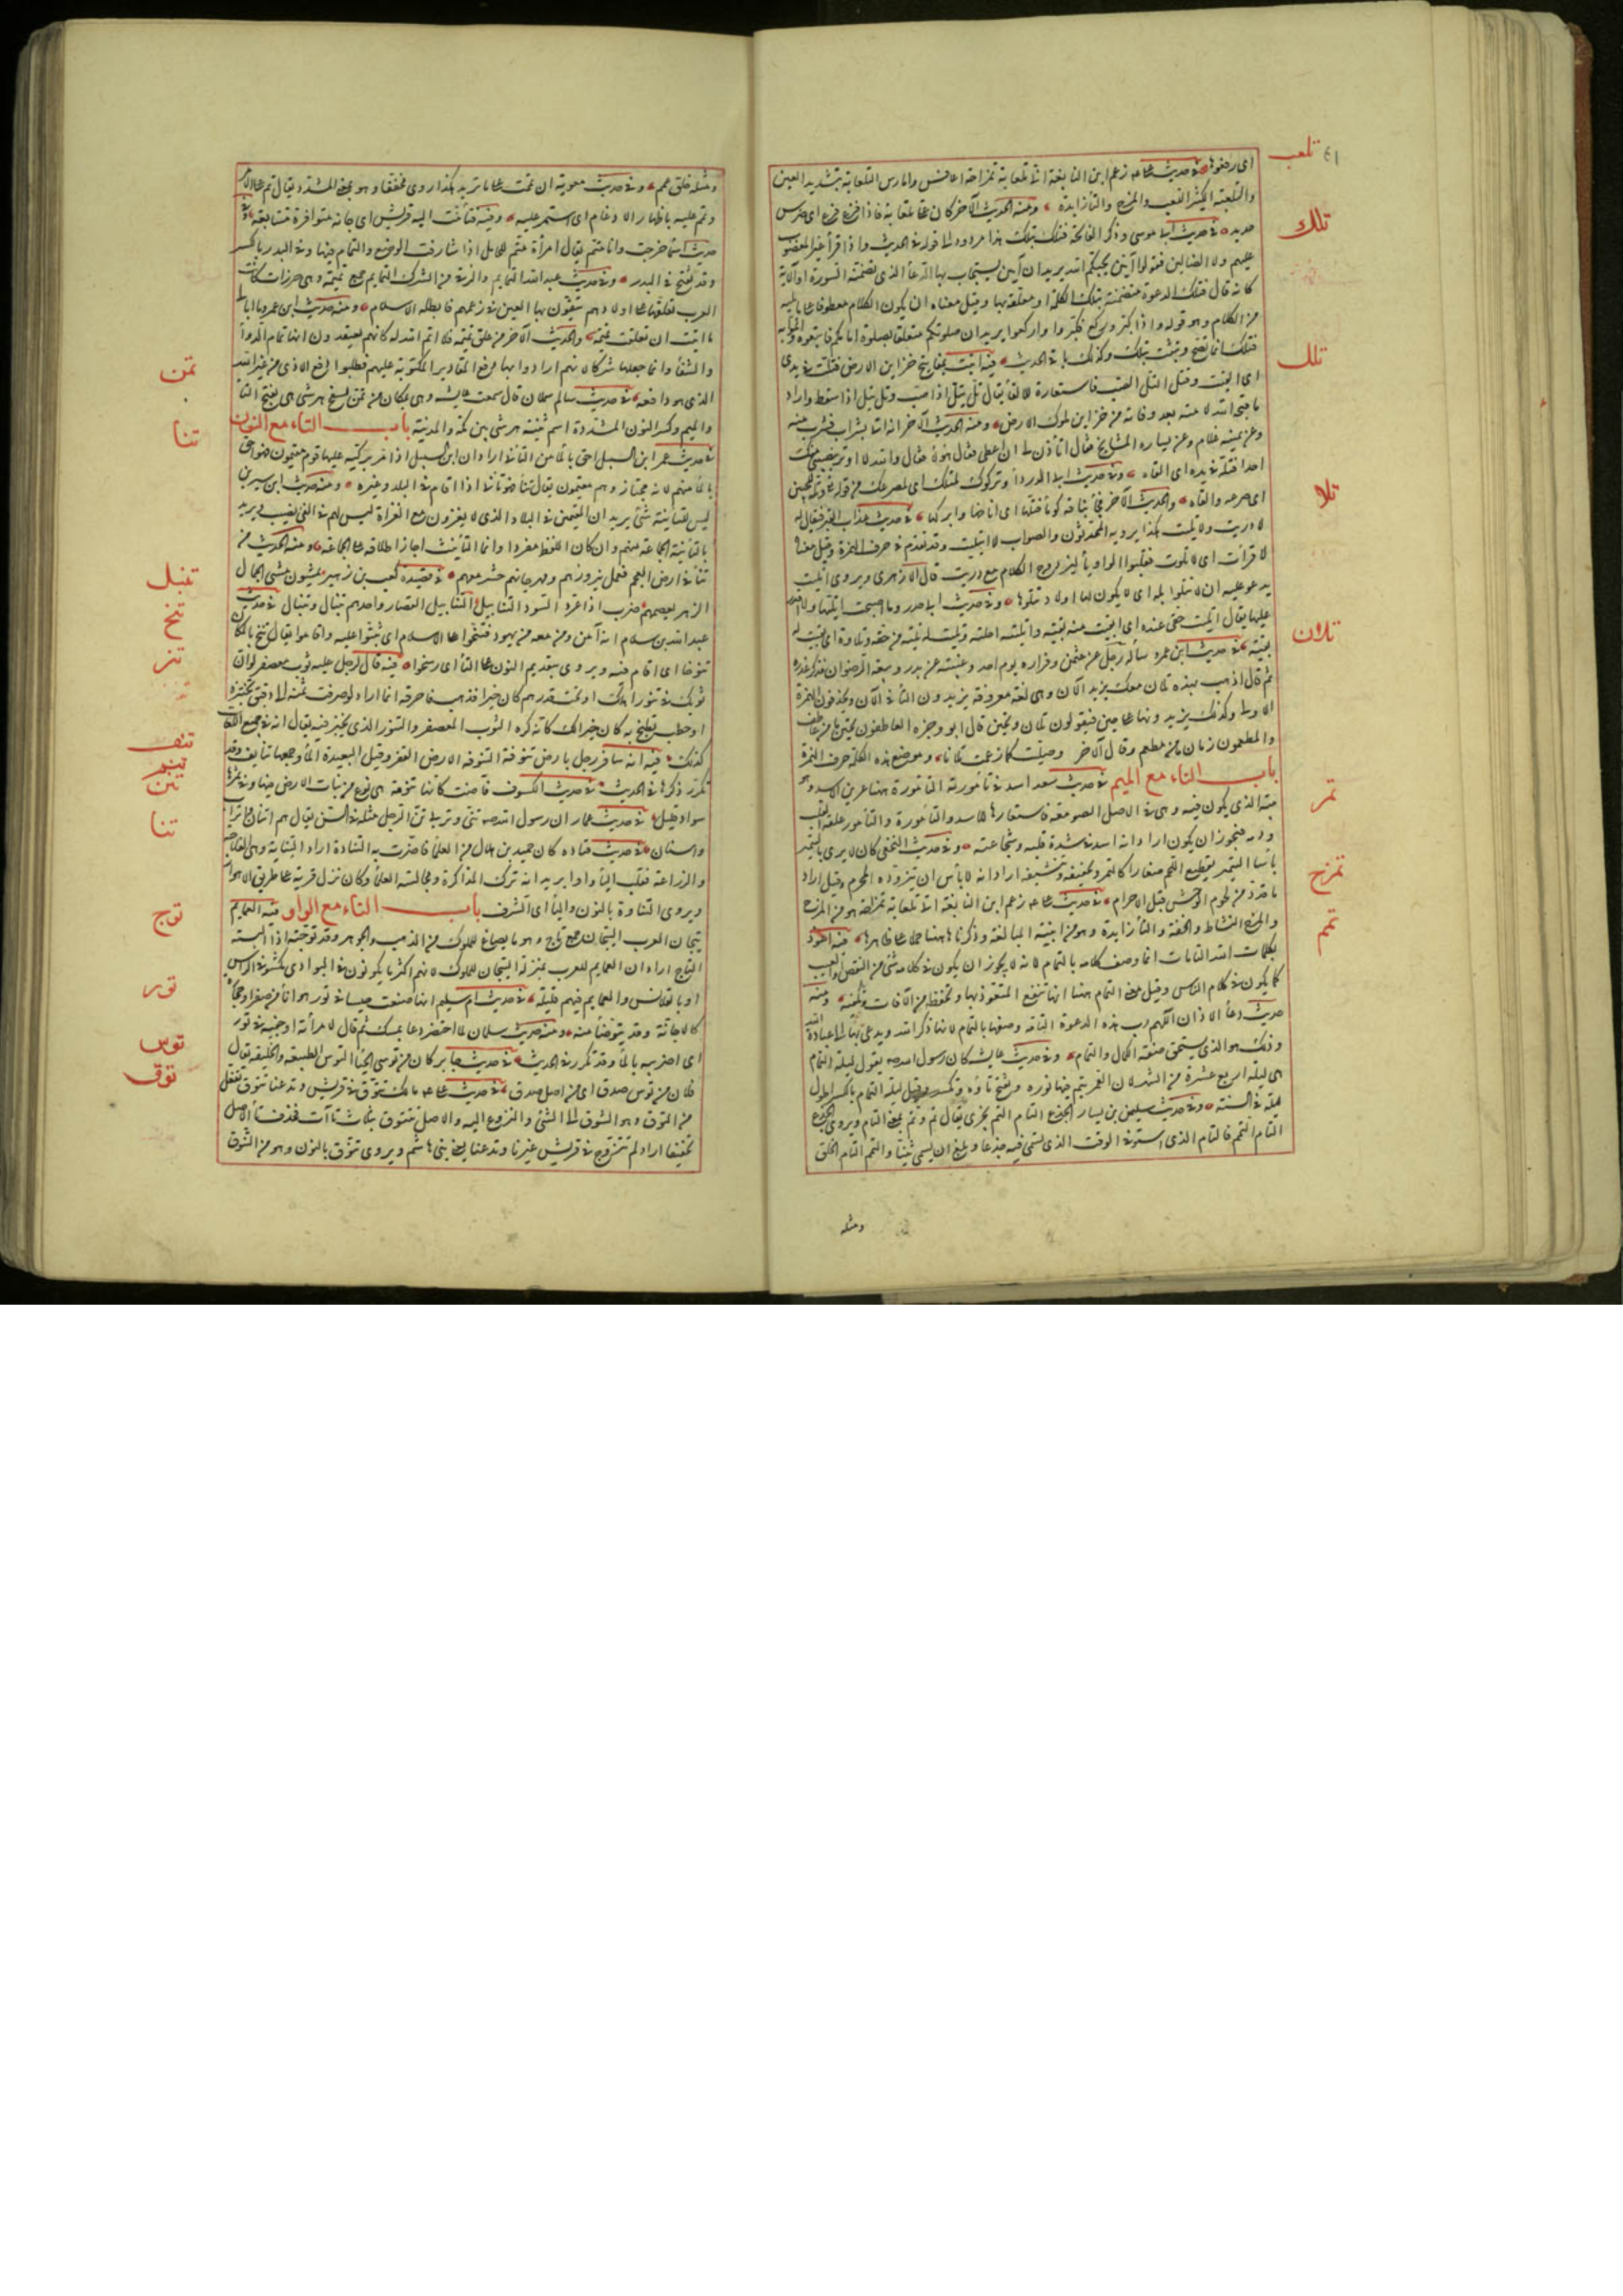 ٤١
تلعب
اى رفعوا في حديث على زعم ابن النابغة انى تلعابة تمزاحة اعافس وامارس التلعابة بتشديد العين
والتلعيبة الكثير اللعب والمزح والتا زايدة ومنه الحديث الآخر كان على تلعابة فاذا فزع فزع الى ضرس
تلك
حديد في حديث ابى موسى وذكر الفاتحة فتلك بتلك هذا مردود الى قوله في الحديث واذا قرأ غير المغضوب
عليهم ولا الضالين فقولوا آمين يحبكم الله يريد ان آمين يستجاب بها الدعا الذى تضمنته السورة او الآية
كانه قال فتلك الدعوة متضمنة بتلك الكلمة او معلقة بها وقيل معناه ان يكون الكلام معطوفا على ما يليه
من الكلام وهو قوله واذا كبر وركع فكبروا واركعوا يريد ان صلوتكم متعلقة بصلوة امامكم فاتبعوه وائتموا به
تلل
فتلك انما تصح وتثبت بتلك وكذلك باقى الحديث فيه اتيت بمفاتيح خزاين الارض فتلت في يدى
اى القيت وقيل التل الصب فاستعارة للالقا يقال تل يتل اذا صب وتل يتل اذا سقط واراد
ما فتحه الله لامته بعد وفاته من خزاين ملوك الارض ومنه الحديث الآخر انه اتى بشراب فشرب منه
وعن يمينه غلام وعن يساره المشايخ فقال اتأذن لى ان اعطى هؤلاء فقال والله لا اوثر بنصيبى منك
احدا فتله في يده اى القاه وفي حديث ابى الدرداء وتركوك لمتلك اى لمصرعك من قوله تعالى وتله للجبين
تلا
اى صرعه والقاه والحديث الآخر فجاء بناقة كوماء فتلها اى اناخها وابركها في حديث عذاب القبر فيقال له
لا دريت ولا تليت هكذا يرويه المحدثون والصواب ولا ائتليت وقد تقدم في حرف الهمزة وقيل معناه
لا قرات اى لا تلوت فقلبوا الواو ياء ليزدوج الكلام مع دريت قال الازهرى ويروى اتليت
يدعو عليه ان لا تتلى ابله اى لا يكون لها اولاد تتلوها وفي حديث ابى حدرد ما اصبحت اتليها ولا اقدر
عليها يقال اتليت حقى عنده اى ابقيت منه بقية واتليته احلته وتليت له تلية من حقه وتلاوة اى بقيت له
تلان
بقية في حديث ابن عمر وساله رجل عن عثمن وفراره يوم احد وغيبته عن بدر وبيعة الرضوان فذكر عذره
ثم قال اذهب بهذه تلان معك يريد الآن وهى لغة معروفة يزيدون التا في الآن ويحذفون الهمزة
الاولى وكذلك يزيدونها على حين فيقولون تلان وتحين قال ابو وجزة العاطفون تحين ما من عاطف
والمطعمون زمان ما من مطعم وقال الآخر وصلينا كما زعمت تلانا وموضع هذه الكلمة حرف الهمزة
تمر
باب التاء مع الميم في حديث سعد اسد في تامورته التامورة ههنا عرين الاسد وهو
بيته الذى يكون فيه وهى في الاصل الصومعة فاستعارها للاسد والتامورة والتامور علقة القلب
ودمه فيجوز ان يكون اراد انه اسد في شدة قلبه وشجاعته وفي حديث النخعى كان لا يرى بالتتمير
باسا التتمير تقطيع اللحم صغارا كالتمر وتجفيفه وتنشيفه اراد انه لا باس ان يتزوده المحرم وقيل اراد
تمزح
ما قدد من لحوم الوحش قبل الاحرام في حديث على زعم ابن النابغة انى تلعابة تمزاحة هو من المزح
والمرح النشاط والخفة والتا زايدة وهو من ابنية المبالغة وذكرناها ههنا حملا على ظاهرها فيه اعوذ
تمم
بكلمات الله التامات انما وصف كلامه بالتمام لانه لا يجوز ان يكون في كلامه شئ من النقص والعيب
كما يكون في كلام الناس وقيل معنى التمام ههنا انها تنفع المتعوذ بها وتحفظه من الآفات وتكفيه ومنه
حديث دعاء الاذان اللهم رب هذه الدعوة التامة وصفها بالتمام لانها ذكر الله ويدعى بها الى عبادة الله
وذلك هو الذى يستحق صفة الكمال والتمام وفي حديث عايشة كان رسول الله صلعم يقوم ليلة التمام
هى ليلة اربع عشرة من الشهر لان القمر يتم فيها نوره وتفتح تاؤه وتكسر وقيل ليلة التمام بالكسر اطول
ليلة في السنة وفي حديث سليمن بن يسار الجذع التام التمم يجزى يقال تم وتم بمعنى التام ويروى الجذع
التام التمم فالتام الذى استوفى الوقت الذى يسمى فيه جذعا وبلغ ان يسمى ثنيا والتمم التام الخلق
ومثله
ومثله خلق عمم وفي حديث معوية ان تممت على ما تريد هكذا روى مخففا وهو بمعنى المشدد يقال تم على الامر
وتمم عليه باظهار الادغام اى استمر عليه وفيه فتتامت اليه قريش اى جاته متوافرة متتابعة وفي
حديث اسما خرجت وانا متم يقال امرأة متم للحامل اذا شارفت الوضع والتمام فيها وفي البدر بالكسر
وقد تفتح في البدر وفي حديث عبد الله التمايم والرقى من الشرك التمايم جمع تميمة وهى خرزات كانت
العرب تعلقها على اولادهم يتقون بها العين في زعمهم فابطله الاسلام ومنه حديث ابن عمر وما ابالى
ما اتيت ان تعلقت تميمة والحديث الآخر من علق تميمة فلا اتم الله له كانهم يعتقدون انها تمام الدواء
تمن
والشفاء وانما جعلها شركا لانهم ارادوا بها دفع المقادير المكتوبة عليهم فطلبوا دفع الاذى من غير الله
الذى هو دافعه في حديث سالم سلان قال سمعت عايشة وهى بمكان من تمن بسفح هرشى هى بفتح التا
تنا
والميم وكسر النون المشددة اسم ثنية هرشى بين مكة والمدينة باب التاء مع النون
في حديث عمر ابن السبيل احق بالماء من التانى اراد ان ابن السبيل اذا مر بركية عليها قوم مقيمون فهو احق
بالماء منهم لانه مجتاز وهم مقيمون يقال تنا فهو تانئ اذا اقام في البلد وغيره ومنه حديث ابن سيرين
ليس للتانية شئ يريد ان المقيمين في البلاد الذى لا ينفرون مع الغزاة ليس لهم في الفئ نصيب ويريد
بالتانية الجماعة منهم وان كان اللفظ مفردا وانما التانيث اجاز اطلاقه على الجماعة ومنه الحديث من
تنبل
تنا في ارض العجم فعمل نيروزهم ومهرجانهم حشر معهم في قصيدة كعب بن زهير يمشون مشى الجمال
تنخ
الزهر يعصمهم ضرب اذا عرد السود التنابيل التنابيل القصار واحدهم تنبل وتنبال في حديث
عبد الله بن سلام انه آمن ومن معه من يهود فتنخوا على الاسلام اى ثبتوا عليه واقاموا يقال تنخ بالمكان
تنر
تنوخا اى اقام فيه ويروى بتقديم النون على التا اى رسخوا فيه قال لرجل عليه ثوب معصفر لو ان
ثوبك في تنور اهلك او تحت قدرهم كان خيرا فذهب فاحرقه انما اراد لو صرفت ثمنه الى دقيق تختبزه
او حطب تطبخ به كان خيرا لك كانه كره الثوب المعصفر والتنور الذى يخبز فيه يقال انه في جميع اللغات
تنف
كذلك فيه انه سافر رجل بارض تنوفة التنوفة الارض القفر وقيل البعيدة الماء وجمعها تنايف وقد
تنم
تنن
تكرر ذكرها في الحديث في حديث الكسوف فآضت كانها تنومة هى نوع من نبات الارض فيها وفي ثمرها
سواد قليل في حديث عمار ان رسول الله صلعم تنى وتربى تن الرجل مثله في السن يقال هم اتنان واتراب
تنا
واسنان في حديث قتادة كان حميد بن هلال من العلماء فاضرت به التناوة اراد التناية وهى الفلاحة
والزراعة فقلب الياء واوا يريد انه ترك المذاكرة ومجالسة العلماء وكان نزل قرية على طريق الاهواز
توج
ويروى النباوة بالنون والباء اى الشرف باب التاء مع الواو فيه العمايم
تيجان العرب التيجان جمع تاج وهو ما يصاغ للملوك من الذهب والجوهر وقد توجته اذا البسته
التاج اراد ان العمايم للعرب بمنزلة التيجان للملوك لانهم اكثر ما يكونون في البوادى مكشوفى الراس
تور
او بالقلانس والعمايم فيهم قليلة في حديث ام سليم انها صنعت حيسا في تور هو اناء من صفر او حجارة
كالاجانة وقد يتوضا منه ومنه حديث سلمان لما احتضر دعا بمسك ثم قال لامرأته اوخفيه في تور
توس
اى اضربيه بالماء وقد تكرر في الحديث في حديث جابر كان من توسى الحيا التوس الطبيعة والخليقة يقال
توق
فلان من توس صدق اى من اصل صدق في حديث على ما لك تتوق في قريش وتدعنا تتوق تفعل
من التوق وهو الشوق الى الشئ والنزوع اليه والاصل تتتوق بثلاث تاآت فحذف تاء الاصل
تخفيفا اراد لم تتزوج في قريش غيرنا وتدعنا يعنى بنى هاشم ويروى تنوق بالنون وهو من التنوق